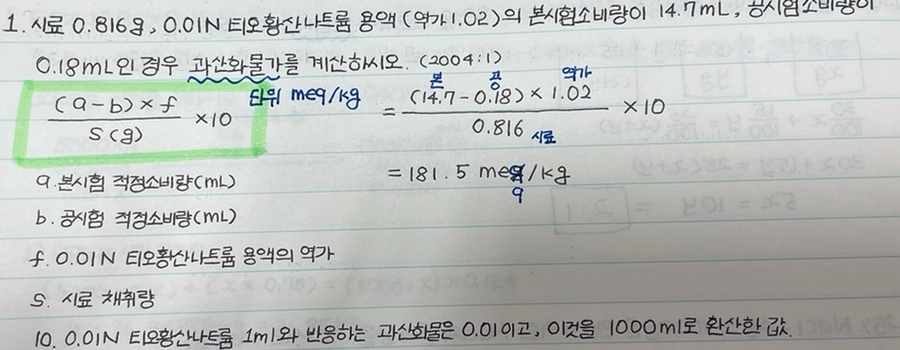 1. 시료 0.816g, 0.01N 티오황산나트륨 용액 (역가 1.02)의 본시험소비량이 14.7mL, 공시험소비량이
0.18mL인 경우 과산화물가를 계산하시오. (2004:1)
단위 meq/kg
(a-b)×f
S(g)
×10
본 공 역가
= (14.7-0.18)×1.02
0.816 시료
×10
= 181.5 meq/kg
q
a. 본시험 적정소비량(mL)
b. 공시험 적정소비량(mL)
f. 0.01N 티오황산나트륨 용액의 역가
S. 시료 채취량
10. 0.01N 티오황산나트륨 1ml와 반응하는 과산화물은 0.01이고, 이것을 1000ml로 환산한 값.